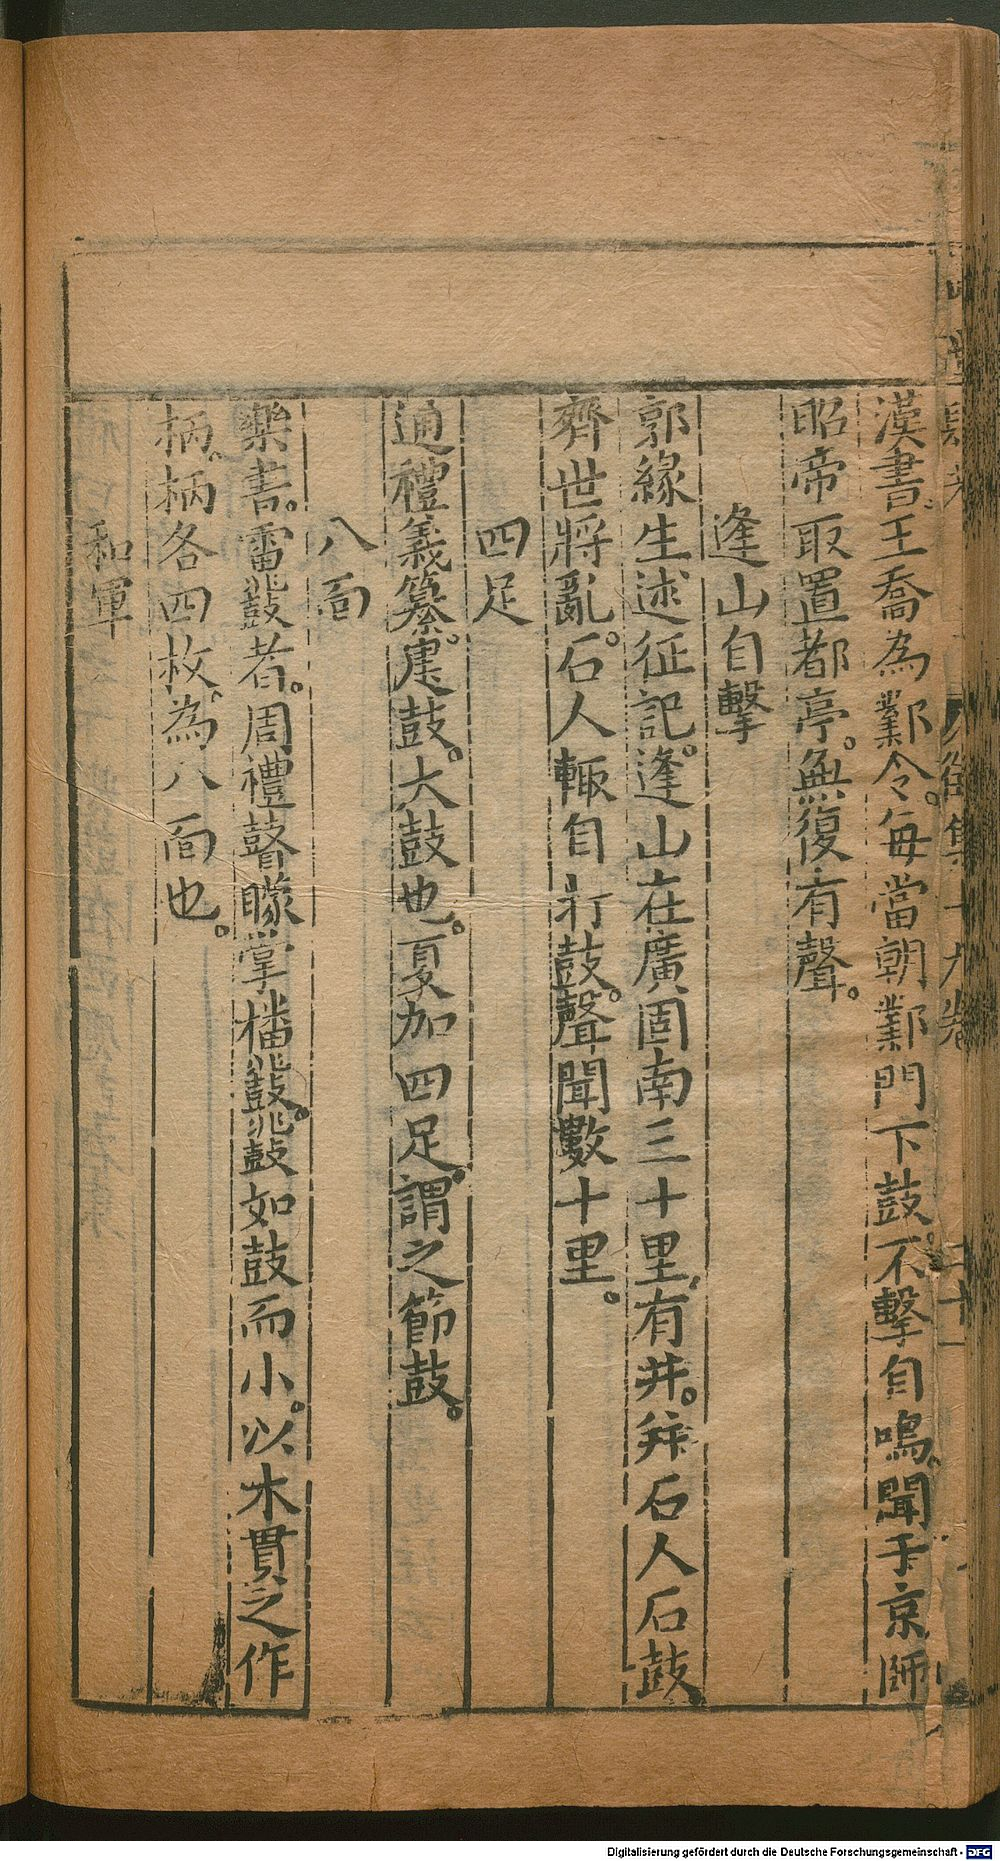 漢書。王喬為鄴令。每當朝鄴門下鼓。不擊自鳴。聞于京師
昭帝取置都亭。無復有聲。
逢山自擊
郭緣生述征記。逢山在廣固南三十里。有井。并石人石鼓
齊世將亂。石人輙自打鼓。聲聞數十里。
四足
通禮義纂。建鼓。大鼓也。夏加四足。謂之節鼓。
八面
樂書。雷鼗者。周禮瞽矇掌播鼗。鼗如鼓而小。以木貫之作
柄。柄各四枚。為八面也。
和軍
十九卷
二十一
Digitalisierung gefördert durch die Deutsche Forschungsgemeinschaft - DFG